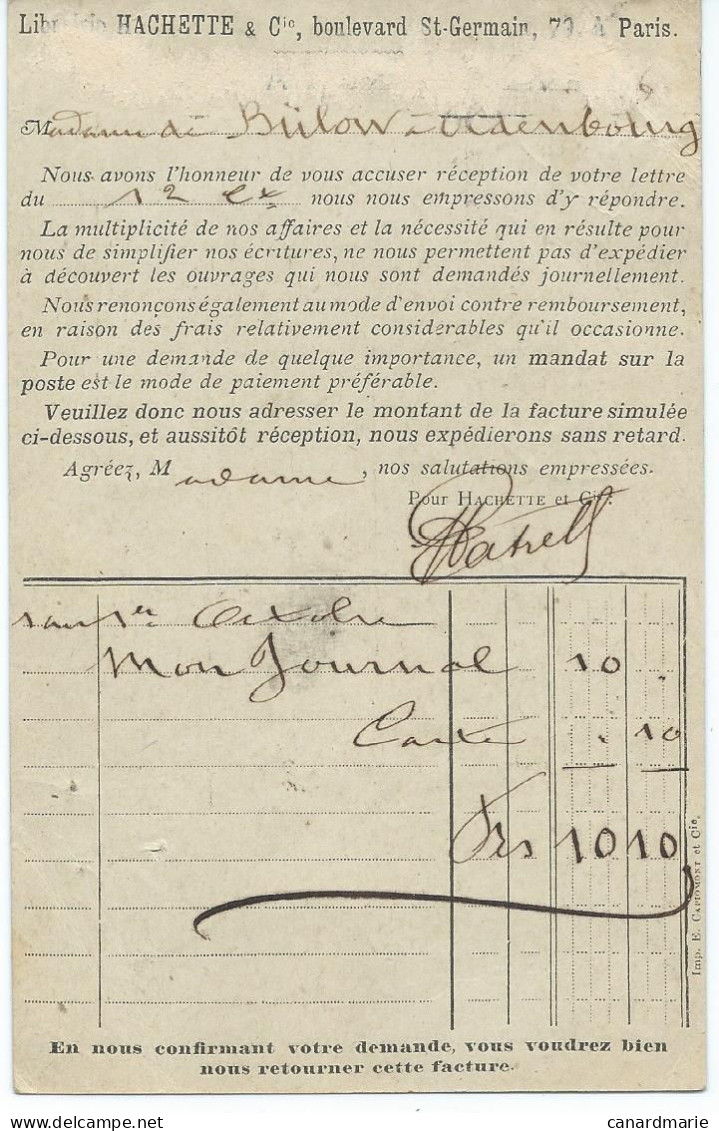 Librairie HACHETTE & Cie, boulevard St-Germain, 79, à Paris.
Madame de Bülow Oldenbourg
Nous avons l'honneur de vous accuser réception de votre lettre
du 12 ct nous nous empressons d'y répondre.
La multiplicité de nos affaires et la nécessité qui en résulte pour
nous de simplifier nos écritures, ne nous permettent pas d'expédier
à découvert les ouvrages qui nous sont demandés journellement.
Nous renonçons également au mode d'envoi contre remboursement,
en raison des frais relativement considérables qu'il occasionne.
Pour une demande de quelque importance, un mandat sur la
poste est le mode de paiement préférable.
Veuillez donc nous adresser le montant de la facture simulée
ci-dessous, et aussitôt réception, nous expédierons sans retard.
Agréez, Madame, nos salutations empressées.
Pour HACHETTE et Cie.
1er Octobre
Mon Journal 10 .
Carte . 10
Frs 10 10
Imp. E. CAPIOMONT et Cie.
En nous confirmant votre demande, vous voudrez bien
nous retourner cette facture.
canardmarie